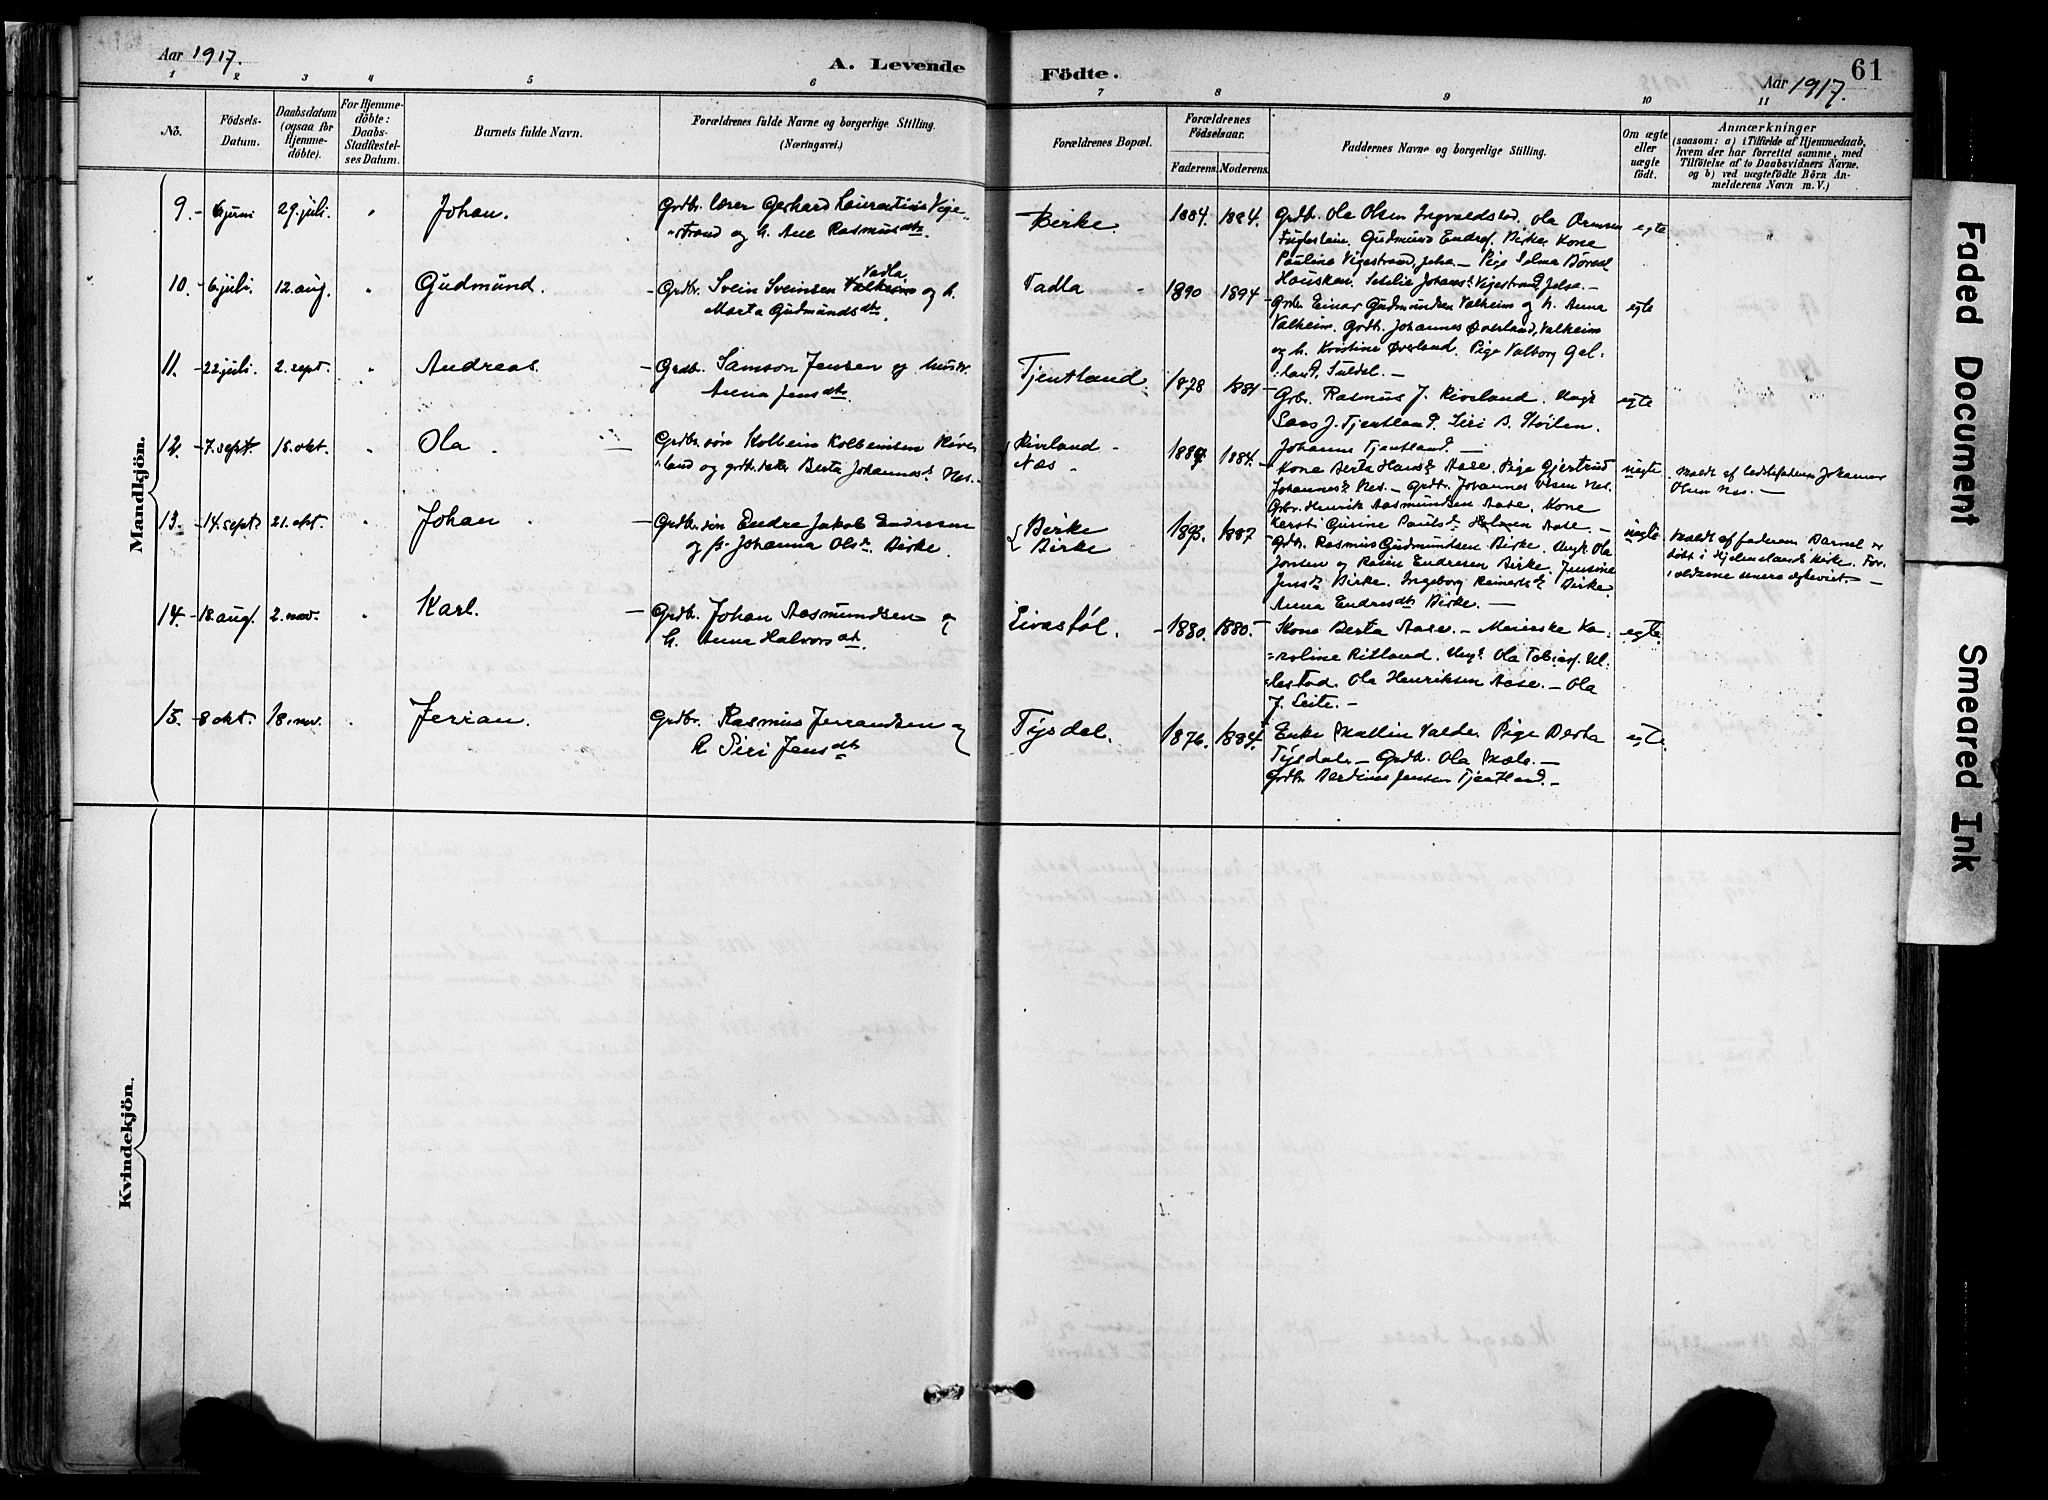 Aar 1917.
A. Levende Födte.
61
Aar 1917.
1 2 3 4 5 6 7 8 9 10 11
No.
Födsels-Datum.
Daabsdatum (ogsaa for Hjemmedöbte).
For Hjemmedöbte: Daabs-Stadfæstelses Datum.
Barnets fulde Navn.
Forældrenes fulde Navne og borgerlige Stilling.
(Næringsvei.)
Forældrenes Bopæl.
Forældrenes Födselsaar.
Faderens. Moderens.
Faddernes Navne og borgerlige Stilling.
Om ægte eller uægte födt.
Anmærkninger
(saasom: a) i Tilfælde af Hjemmedaab,
hvem der har forrettet samme, med
Tilföielse af to Daabsvidners Navne.
og b) ved uægtefödte Börn An-
melderens Navn m. V.)
Mandkjön.
9. - 6 juni 29. juli. " Johan.
Grdbr. lærer Gerhard Laurentius Vige-
strand og h. Ane Rasmusdtr.
Birke. 1884. 1884.
Grdbr. Ola Olsen Ingvaldstad. Ola Ormsen
Fuglestein. Gudmund Endres. Birke. Kone
Pauline Vigestrand, Jelsa - Pige Selma
Hausken. Johans. Vigestrand, Jelsa. -
egte
10. - 6 juli. 12. aug. " Gudmund.
- Grdbr. Svein Sveinsen Valheim Vadla og h.
Marta Gudmundsdtr.
Vadla - 1890 1894 -
Grdbr. Einar Gudmundsen Valheim og h. Anna
Valheim. Grdb. Johannes Øverland, Valheim
og h. Kristine Øverland. Pige Valborg Gel-
land, Suldal. -
egte
11. - 22 juli. 2. sept. " Andreas.
- Grdbr. Samson Jensen og hustr.
Anna Jensdtr.
Tjentland. 1878 1884 -
Grbr. Rasmus J. Riveland. Ungk.
Lars J. Tjentland. Siri B. Støilen.
Johanne Tjentland. -
egte
12. - 7. sept. 16. okt. " Ola. -
Grdbr. søn Kolbein Kolbeinsen Rive-
land og grdb. dater Berta Johannesd. Nes. -
Riveland - Næs - 1884. -
Kone Berta Hansd. Aase. Pige Gjertrud
Johannesd. Nes. - Grdbr. Johannes Olsen Nes.
Grbr. Henrik Aasmundsen Aase. Kone
uegte
Meldt af Johannes
Olsen Nes. -
13. - 14. sept. 21. okt. " Johan.
- Grdbr. søn Endre Jakob Endresen
og p. Johanna Olsd. Birke.
Birke
Birke
1893. 1887 -
Kersti Gurine Paulsd. Aase. -
Grdb. Rasmus Gudmundsen Birke. Ungk. Ola
Jonsen og Rasm. Endresen Birke. Jensine
Jensd. Birke. Ingeborg Reinertsd. Birke.
Anna Endresdtr. Birke. -
uegte
Meldt af faderen. Barnet er
døbt i Hjelmelands kirke. For-
ældrene senere egteviet. -
14. - 18. aug. 2. nov. " Karl.
- Grdb. Johan Aasmundsen og
h. Anna Halvorsdtr.
- 1880. 1880. -
Kone Berta Aase. - Meierske Ka-
roline Ritland. Ungk. Ola Tobias. Ul-
lestad. Ola Henriksen Aase. - Ola
J. Leite. -
egte.
15. - 8 okt. 18. nov. " Jerran.
Grdbr. Rasmus Jerransen og
h. Siri Jensdtr.
Tysdal. 1876. 1884. -
Enke Mallin Valde. Pige Berta
Tysdal. - Grdb. Ola Mæle. -
Grdbr. Berdines Jensen Tjentland. -
egte
Kvindekjön.
Faded Document
Smeared Ink